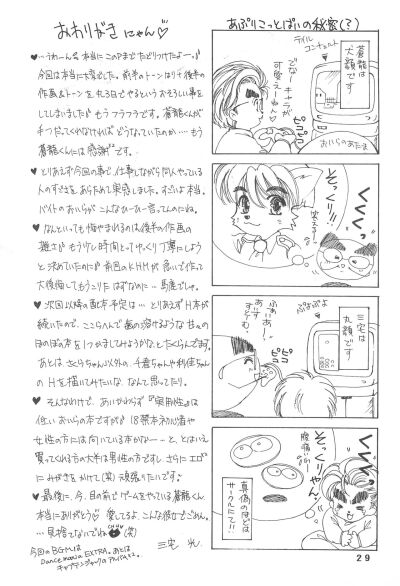 おわりがき にゃん♡
♥…うわーん、本当にこのPまでたどりつけたよー。
今回は本当に大変でした。前半のトーンはリチ後半の
作画&トーンを丸3日でやるというおそろしい事を
してしまいました もうフラフラです。蒼龍くんが
手つだってくれなければどうなっていたのか…もう
蒼龍くんには感謝です。
♥とりあえず今回の事で、仕事しながら同人やっている
人のすごさをあらためて実感しました。すごいよ本当。
バイトのおいらがこんなひーひー言ってんのにね。
♥なんといっても悔やまれるのは後半の作画の
雑さ もう少し時間とってゆっくり丁寧にしよう
と決めていたのに 前回のKHMが急いで作って
大後悔してもうこりたはずなのに…馬鹿でしゃ。
♥次回以降の配本予定は…とりあえずH本が
続いたので、ここらへんで歯の溶けるような甘ぁの
ほのぼの本を1つかましてみようかなとたくらんでます。
あとは、さくらちゃん以外の、千春ちゃんや利佳ちゃん
のHを描いてみたいな、なんて思ってたり。
♥そんなわけで、あいかわらず『実用性』は
低いおいらの本ですが 18禁本ネガ消者や
女性の方には向いている本かな…と、とはいえ
買ってくれる方の大半は男性の方ですし、さらにエロに
にみがきをかけて(笑)頑張りたいです♪
♥最後に、今、目の前でゲームをやっている蒼龍くん
本当にありがとう♡愛してるよ、こんな彼女でごめん。
…見捨てないでね (笑)
三宅 光
今回のBGMは
Dance mania EXTRA。あとは
あぷりこっとぱいの秘密(?)
蒼龍は
犬顔です
でな
キャラが
可愛えーなん♡
ピコピコ
おいらのあたま
くくく
笑える!
三宅は
丸顔です
ぷよぷよ
ピコピコ
くくく
そっくりやん!
腹痛い
真偽のほどは
サークルにて!!
29